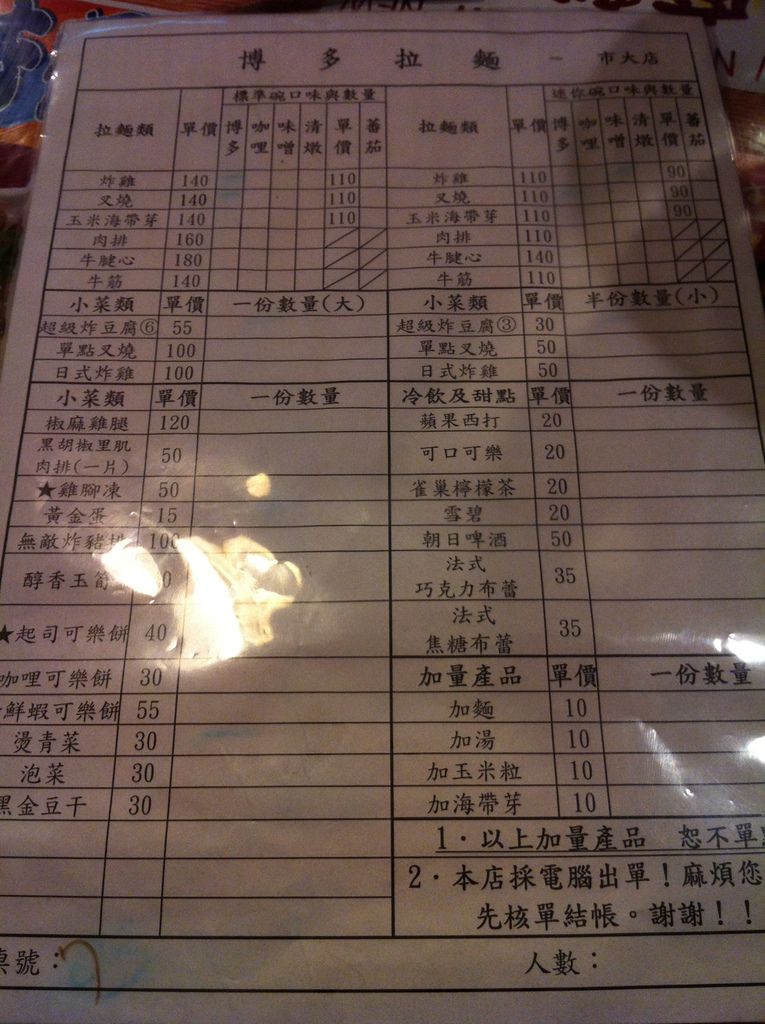 博多拉麵 - 市大店
拉麵類 單價 標準碗口味與數量 拉麵類 單價 迷你碗口味與數量
博多 咖哩 味噌 清燉 單價 蕃茄 博多 咖哩 味噌 清燉 單價 蕃茄
炸雞 140 110 炸雞 110 90
叉燒 140 110 叉燒 110 90
玉米海帶芽 140 110 玉米海帶芽 110 90
肉排 160 肉排 110
牛腱心 180 牛腱心 140
牛筋 140 牛筋 110
小菜類 單價 一份數量(大) 小菜類 單價 半份數量(小)
超級炸豆腐⑥ 55 超級炸豆腐③ 30
單點叉燒 100 單點叉燒 50
日式炸雞 100 日式炸雞 50
小菜類 單價 一份數量 冷飲及甜點 單價 一份數量
椒麻雞腿 120 蘋果西打 20
黑胡椒里肌
肉排(一片) 50 可口可樂 20
★雞腳凍 50 雀巢檸檬茶 20
黃金蛋 15 雪碧 20
無敵炸豬排 100 朝日啤酒 50
醇香玉筍 法式
巧克力布蕾 35
★起司可樂餅 40 法式
焦糖布蕾 35
咖哩可樂餅 30 加量產品 單價 一份數量
鮮蝦可樂餅 55 加麵 10
燙青菜 30 加湯 10
泡菜 30 加玉米粒 10
黑金豆干 30 加海帶芽 10
1．以上加量產品 恕不單
2．本店採電腦出單！麻煩您
先核單結帳。謝謝！！
桌號： 人數：